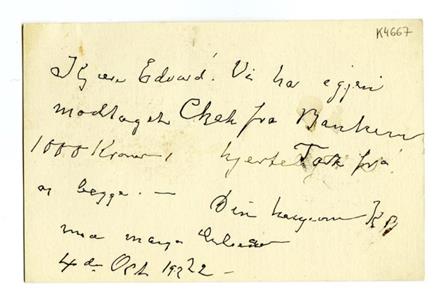 K4667
Kjære Edvard! Vi har egjen
modtaget Chek fra Banken
1000 Kroner, hjertelig Tak fra
os begge. —
Din
med mange Hilsener
4de Oct 1922 —